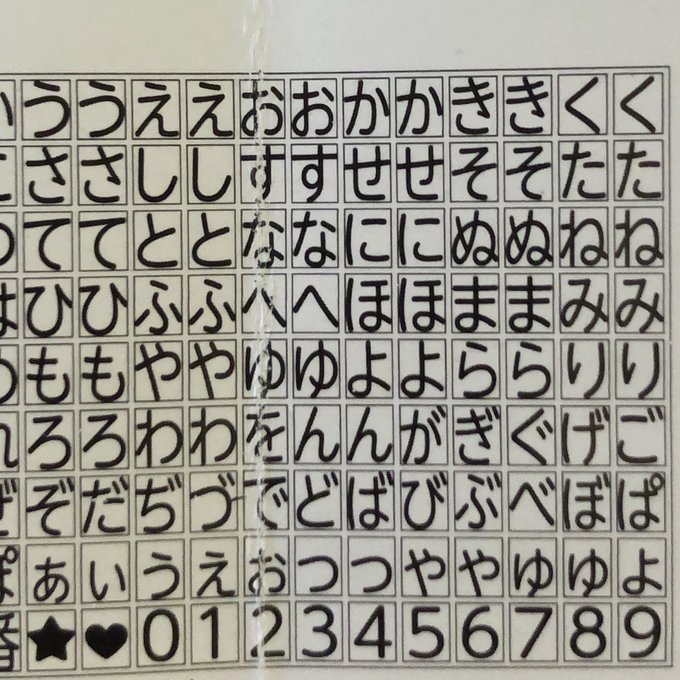 う う え え お お か か き き く く
さ さ し し す す せ せ そ そ た た
て て と と な な に に ぬ ぬ ね ね
ひ ひ ふ ふ へ へ ほ ほ ま ま み み
も も や や ゆ ゆ よ よ ら ら り り
ろ ろ わ わ を ん ん が ぎ ぐ げ ご
ぞ だ ぢ づ で ど ば び ぶ べ ぼ ぱ
ぁ ぃ ぅ ぇ ぉ っ っ ゃ ゃ ゅ ゅ ょ
★ ♥ 0 1 2 3 4 5 6 7 8 9